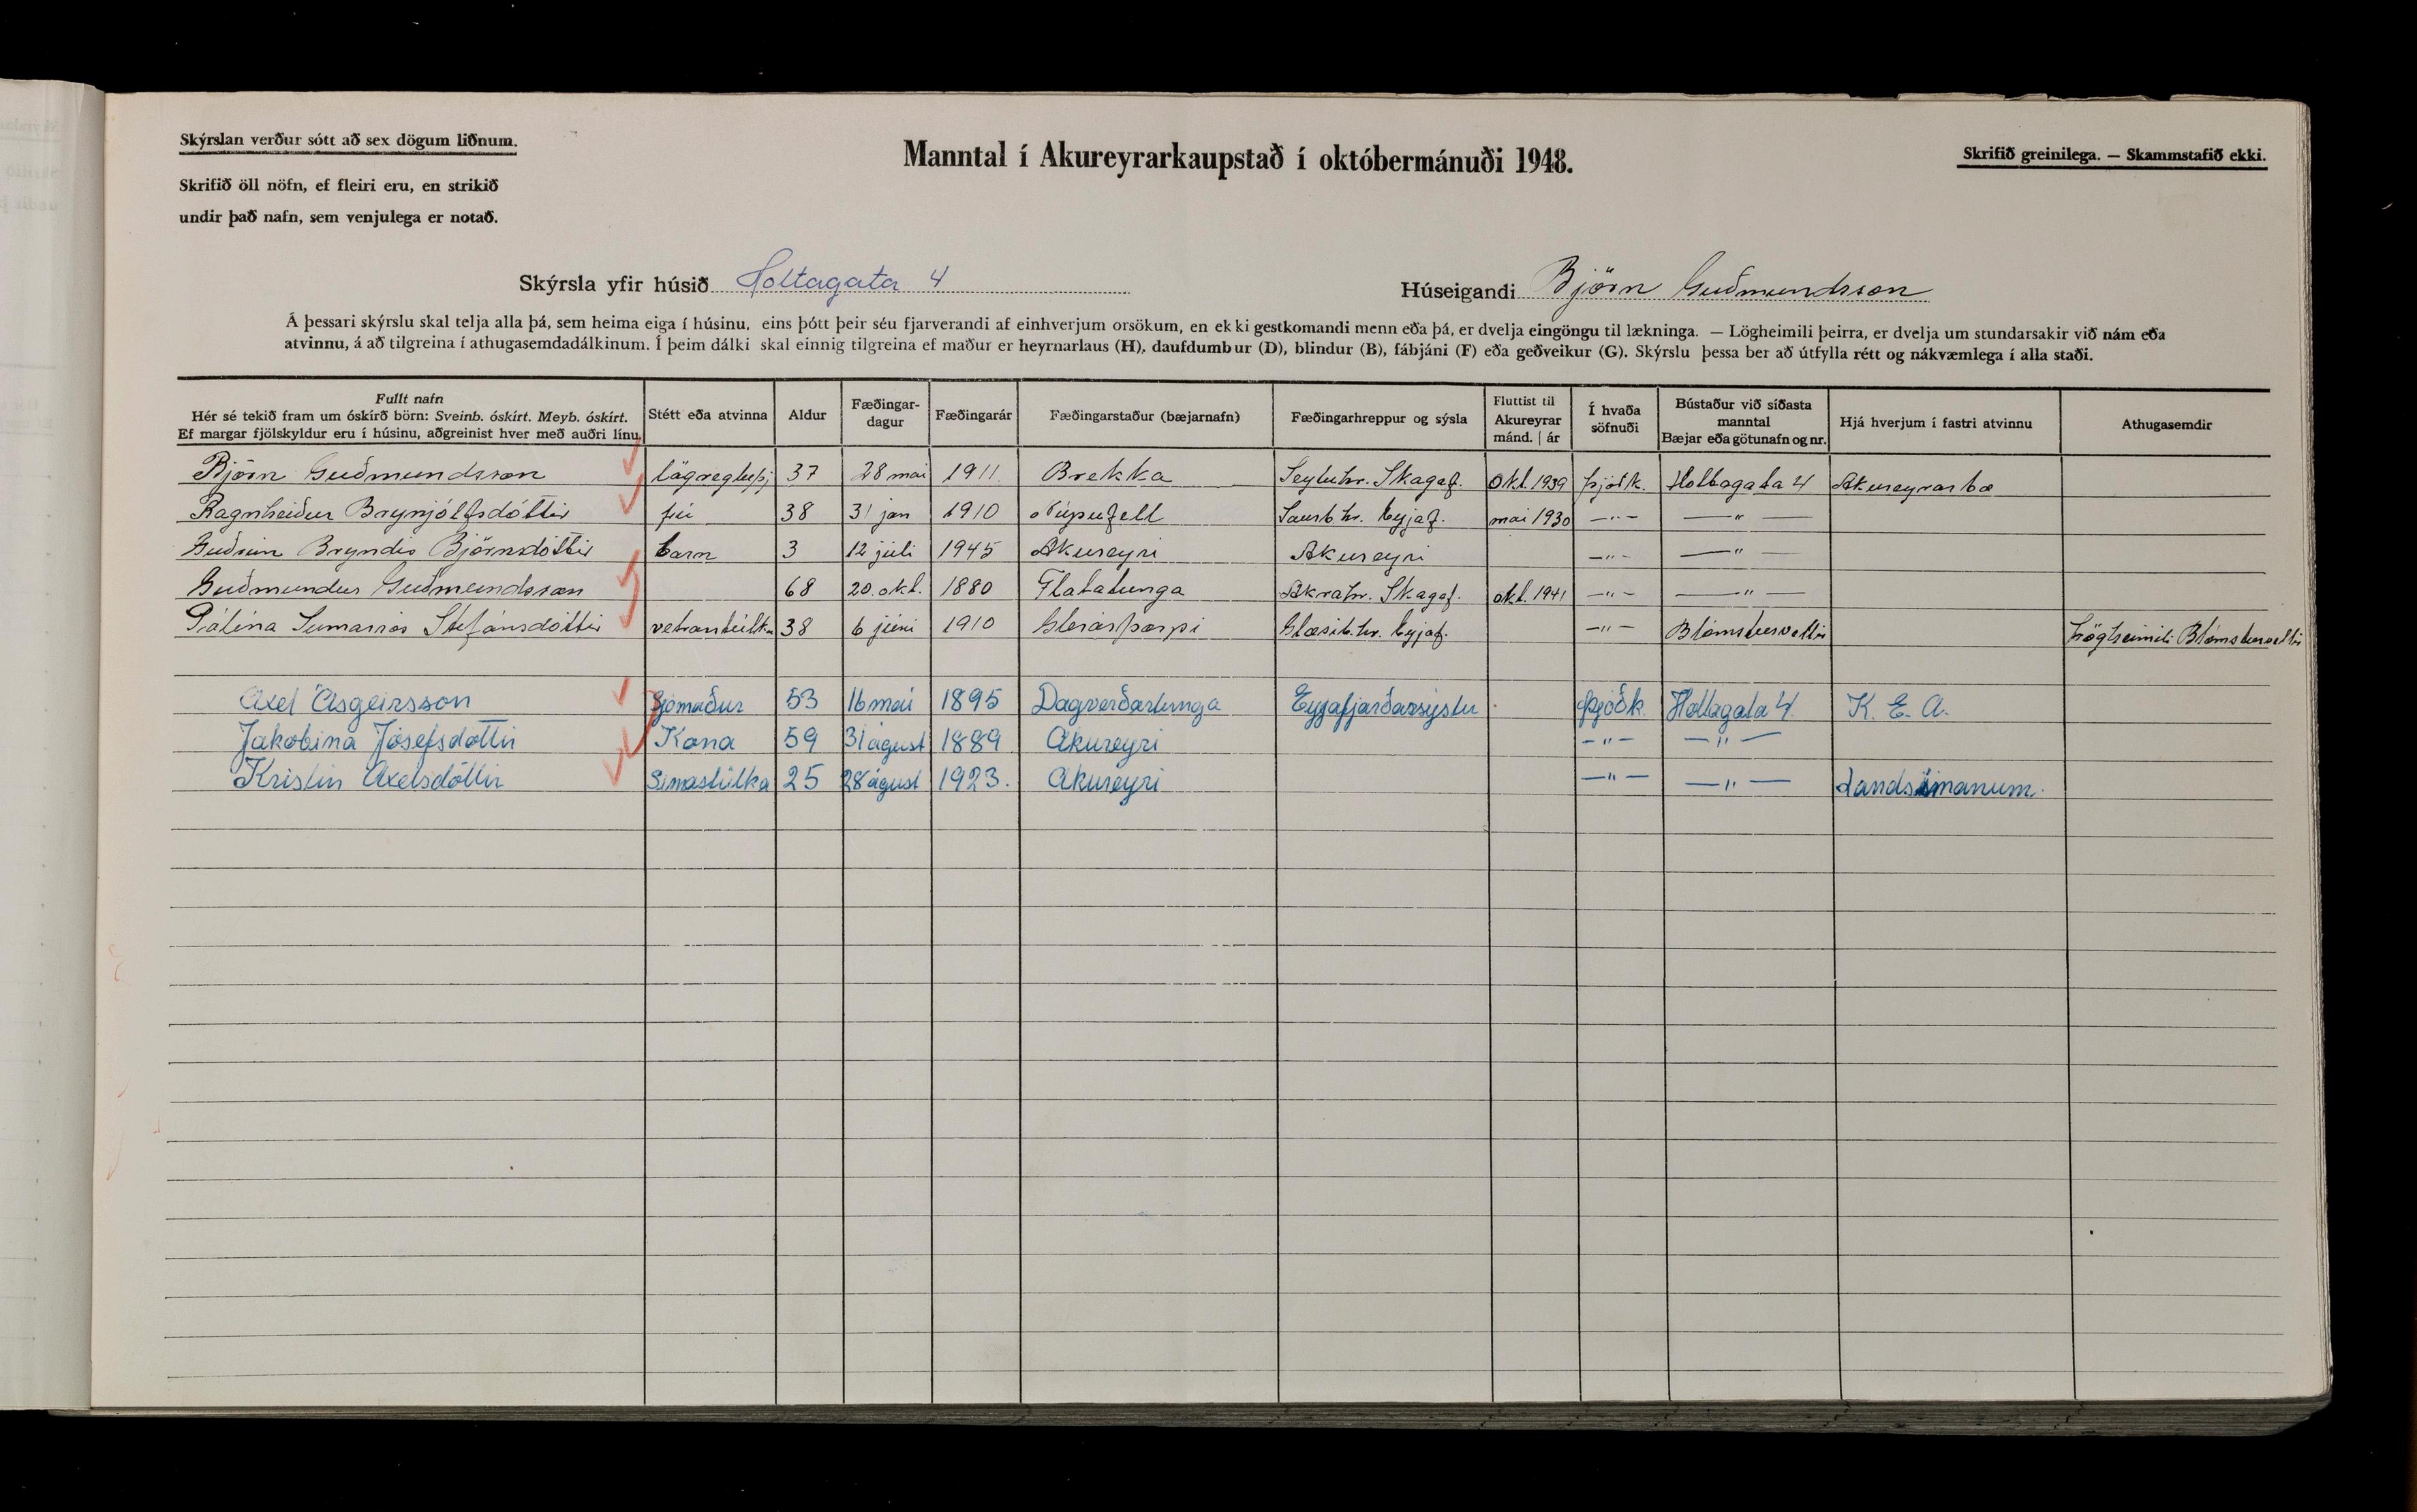 Skýrslan verður sótt að sex dögum liðnum.
Skrifið öll nöfn, ef fleiri eru, en strikið
undir það nafn, sem venjulega er notað.
Manntal í Akureyrarkaupstað í októbermánuði 1948.
Skrifið greinilega. — Skammstafið ekki.
Skýrsla yfir húsið Holtagata 4
Húseigandi Björn Guðmundsson
Á þessari skýrslu skal telja alla þá, sem heima eiga í húsinu, eins þótt þeir séu fjarverandi af einhverjum orsökum, en ekki gestkomandi menn eða þá, er dvelja eingöngu til lækninga. — Lögheimili þeirra, er dvelja um stundarsakir við nám eða
atvinnu, á að tilgreina í athugasemdadálkinum. Í þeim dálki skal einnig tilgreina ef maður er heyrnarlaus (H), daufdumbur (D), blindur (B), fábjáni (F) eða geðveikur (G). Skýrslu þessa ber að útfylla rétt og nákvæmlega í alla staði.
Fullt nafn
Hér sé tekið fram um óskírð börn: Sveinb. óskírt. Meyb. óskírt.
Ef margar fjölskyldur eru í húsinu, aðgreinist hver með auðri línu.
Stétt eða atvinna
Aldur
Fæðingar-
dagur
Fæðingarár
Fæðingarstaður (bæjarnafn)
Fæðingarhreppur og sýsla
Fluttist til
Akureyrar
mánd. | ár
Í hvaða
söfnuði
Bústaður við síðasta
manntal
Bæjar eða götunafn og nr.
Hjá hverjum í fastri atvinnu
Athugasemdir
Björn Guðmundsson lögregluþj 37 28 mai 1911 Brekka Seyluhr. Skagaf. Okt. 1939 þjóðk. Holtagata 4 Akureyrarbæ
Ragnheiður Brynjólfsdóttir frú 38 31 jan 1910 Núpufell Saurb.hr. Eyjaf. mai 1930 —"— —"—
Guðrún Bryndís Björnsdóttir barn 3 12 júli 1945 Akureyri Akureyri —"— —"—
Guðmundur Guðmundsson 68 20. okt. 1880 Flatatunga Akrahr. Skagaf. okt. 1941 —"— —"—
Pálína Sumarrós Stefánsdóttir vetrarstúlka 38 6 júni 1910 Glerárþorpi Glæsib.hr. Eyjaf. —"— Blómsturvellir Lögheimili Blómsturvellir
Axel Ásgeirsson Sjómaður 53 16 maí 1895 Dagverðartunga Eyjafjarðarsýslu þjóðk Holtagata 4. K. E. A.
Jakobína Jósefsdóttir Kona 59 31 ágúst 1889 Akureyri —"— —"—
Kristín Axelsdóttir Símastúlka 25 28 ágúst 1923. Akureyri —"— —"— Landsímanum.